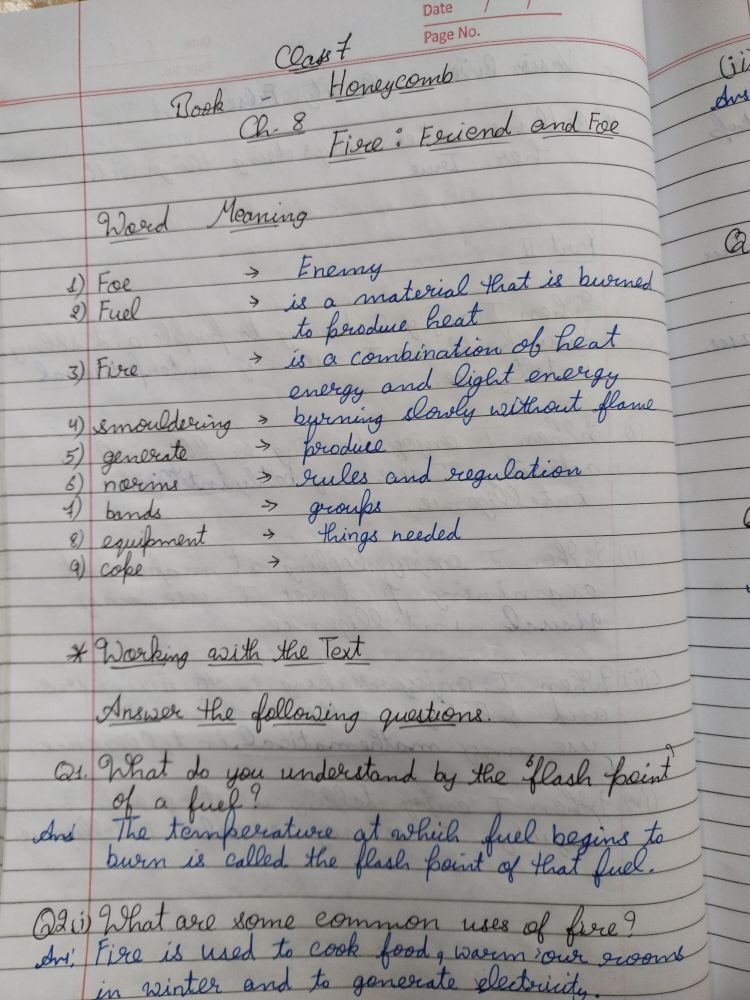 Date / /
Page No.
Class 7
Book - Honeycomb
Ch. 8
Fire : Friend and Foe
Word Meaning
1) Foe → Enemy
2) Fuel → is a material that is burned
to produce heat
3) Fire → is a combination of heat
energy and light energy
4) smouldering → burning slowly without flame
5) generate → produce
6) norms → rules and regulation
7) bands → groups
8) equipment → things needed
9) cope →
* Working with the Text
Answer the following questions.
Q1. What do you understand by the 'flash point'
of a fuel?
Ans The temperature at which fuel begins to
burn is called the flash point of that fuel.
Q2(i) What are some common uses of fire?
Ans: Fire is used to cook food, warm our rooms
in winter and to generate electricity.
(ii
Ans
Q